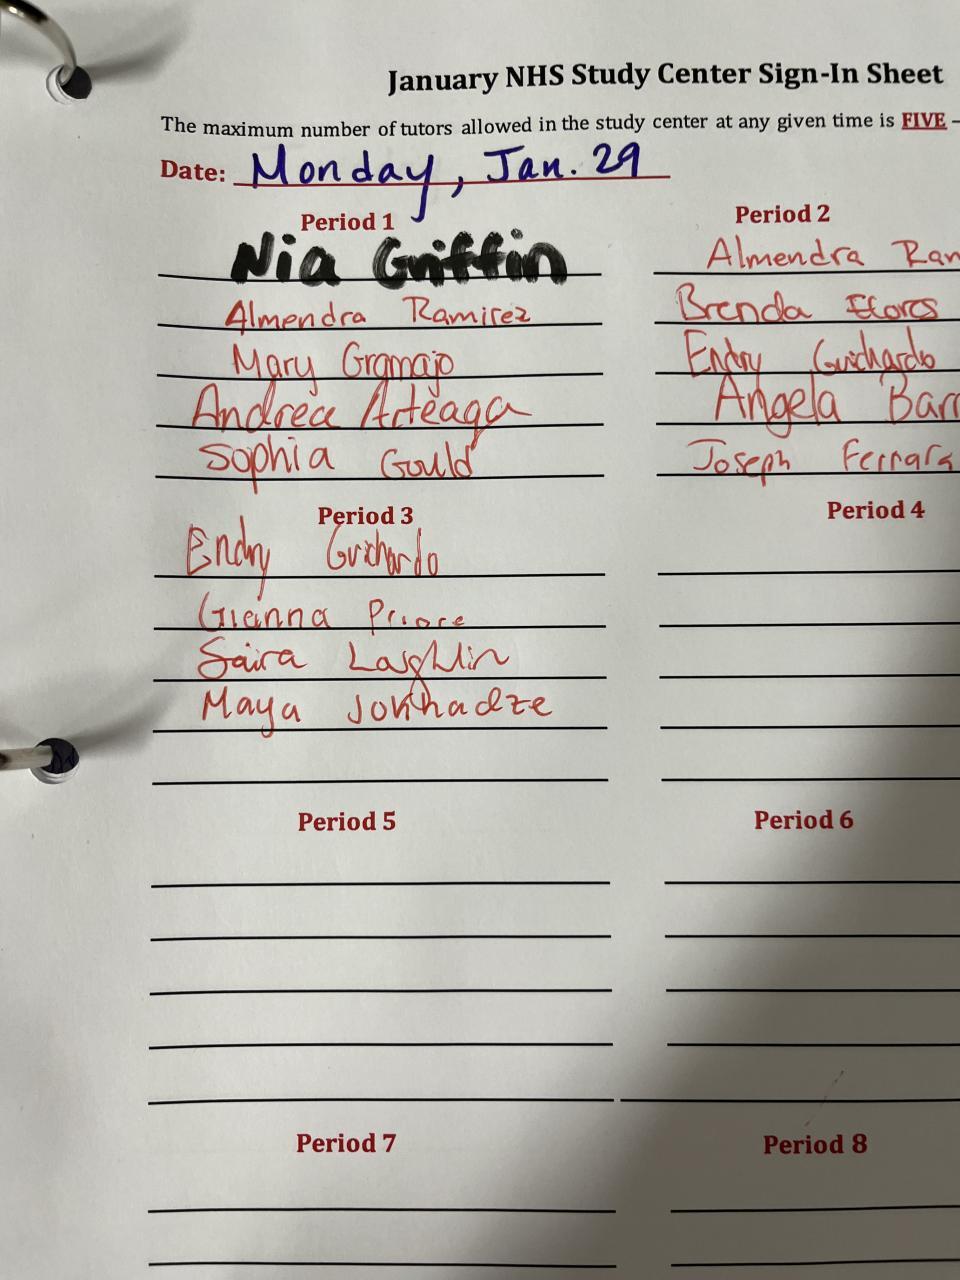 January NHS Study Center Sign-In Sheet
The maximum number of tutors allowed in the study center at any given time is FIVE –
Date: Monday, Jan. 29
Period 1
Nia Griffin
Almendra Ramirez
Mary Gramajo
Andrea Arteaga
Sophia Gould
Period 2
Almendra Ram
Brenda Flores
Endry Guichardo
Angela Barr
Joseph Ferrara
Period 3
Endry Guichardo
Gianna Priore
Saira Laughlin
Maya Jokhadze
Period 4
Period 5
Period 6
Period 7
Period 8